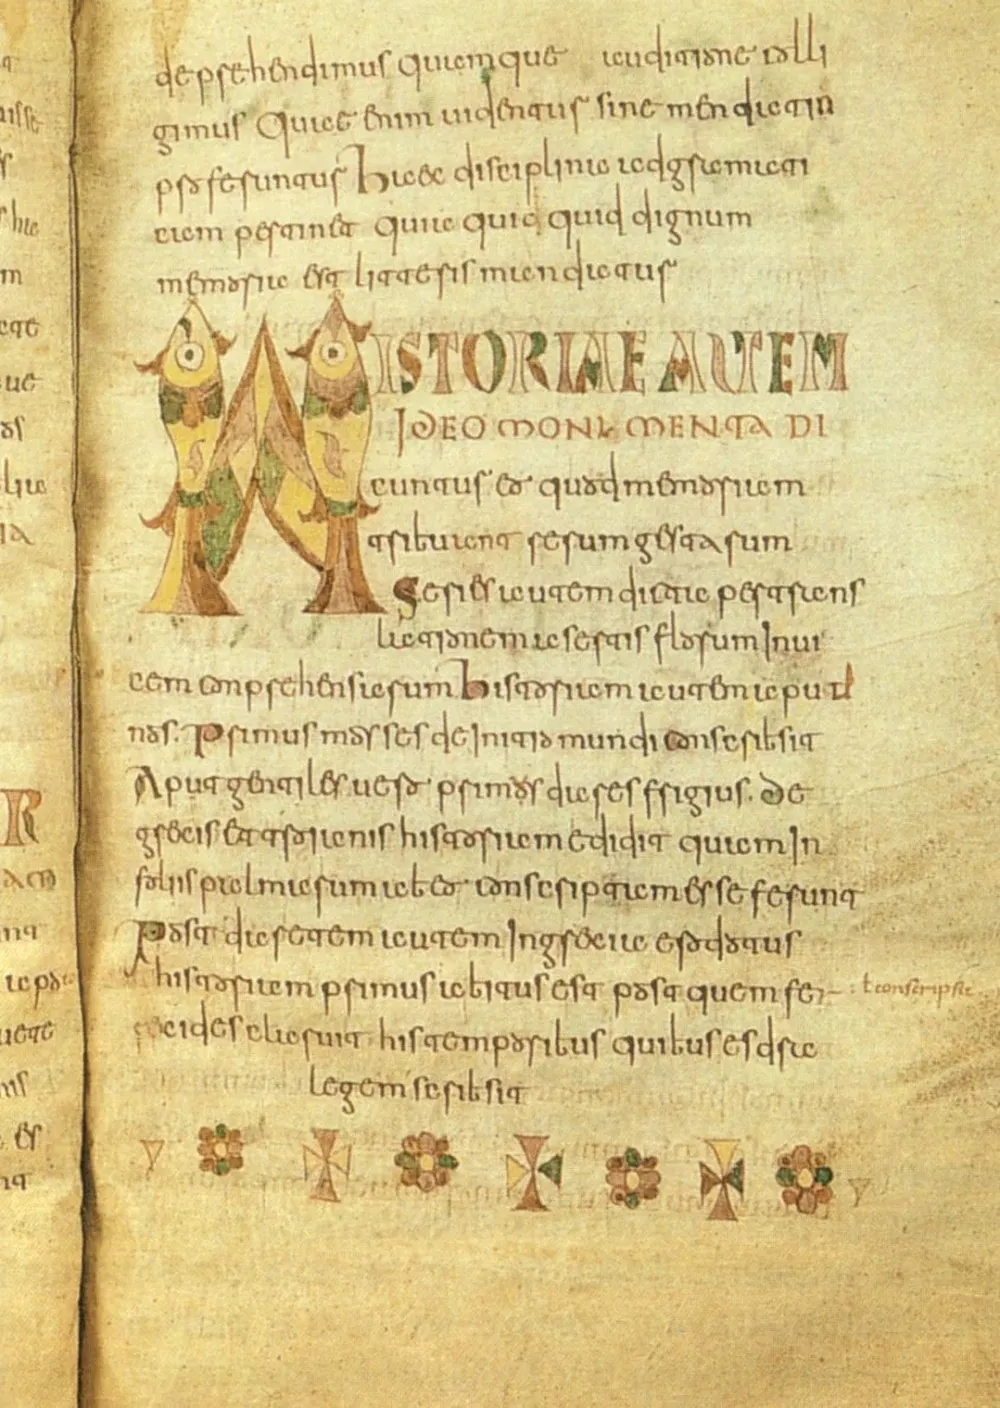 deprehendimus quamque auditione colli
gimus Quae enim uidentur sine mendatio
proferuntur Haec disciplina adgramati
cam pertinet quia quid quid dignum
memoria est litteris mandatur
HISTORIAE AUTEM
IDEO MONUMENTA DI
cuntur eo quod memoriam
tribuant rerum gestarum
Series autem dicta per trans
lationem a sertis florum Inui
cem conprehensarum Historiam autem aput
nos. Primus moyses de Initio mundi conscribsit
Aput gentiles uero primus dares frigius. De
grecis et troianis historiam edidit quam In
foliis palmarum ab eo conscriptam esse ferunt
Post daretem autem In grecia erodotus
historiam primus abitus est post quem fer
ecides claruit his temporibus quibus esdra
legem scribsit